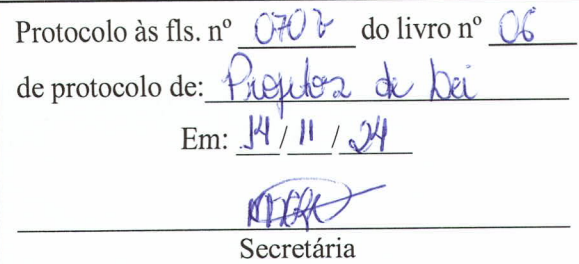 Protocolo às fls. nº 070 v do livro nº 06
de protocolo de: Projetos de Lei
Em: 14/11/24
Secretária